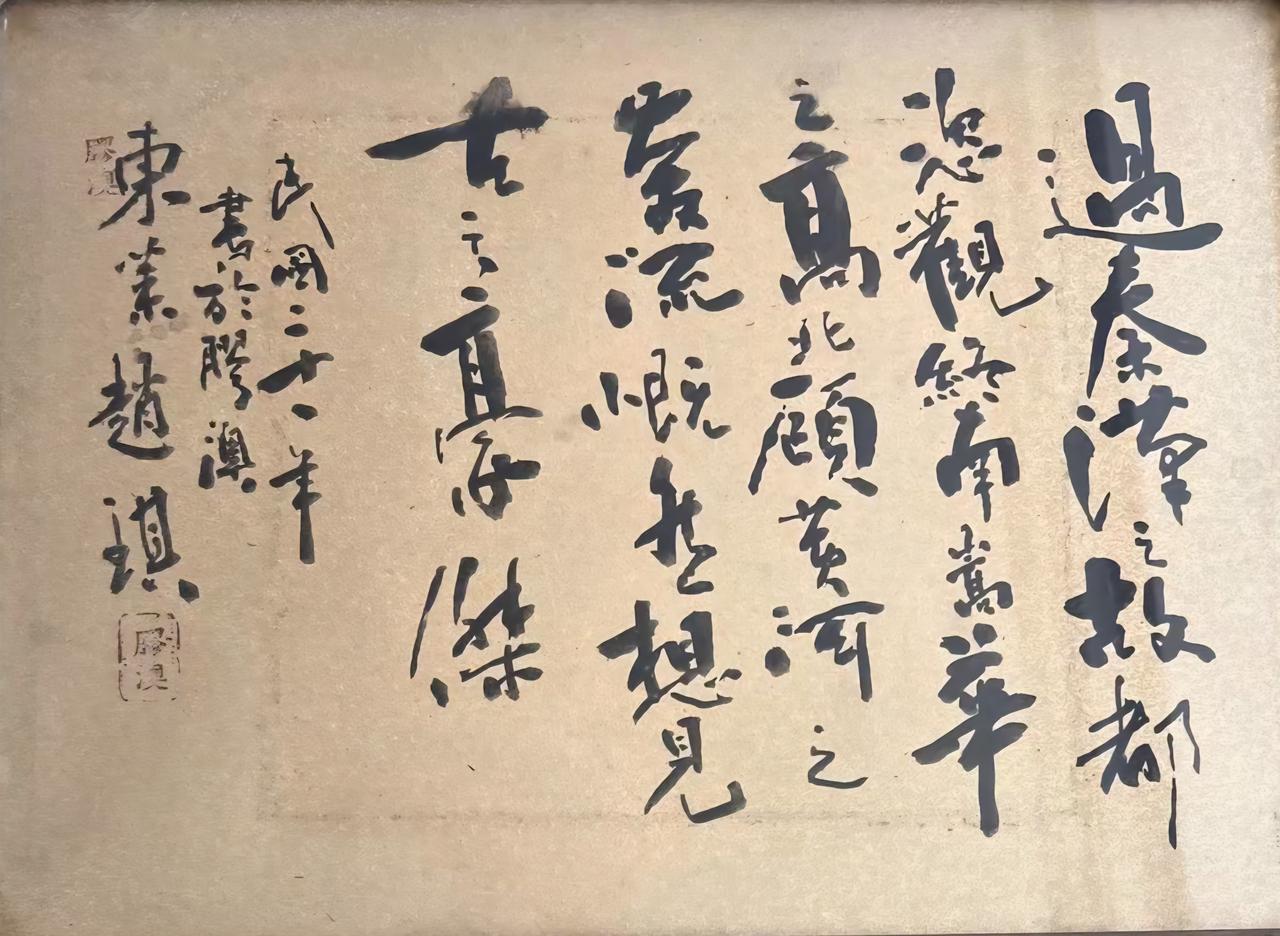 過秦漢之故都
恣觀終南嵩華
之高北顧黃河之
奔流慨然想見
古之豪傑
民國二十一年
書於膠澳
東萊趙琪
膠澳
膠澳